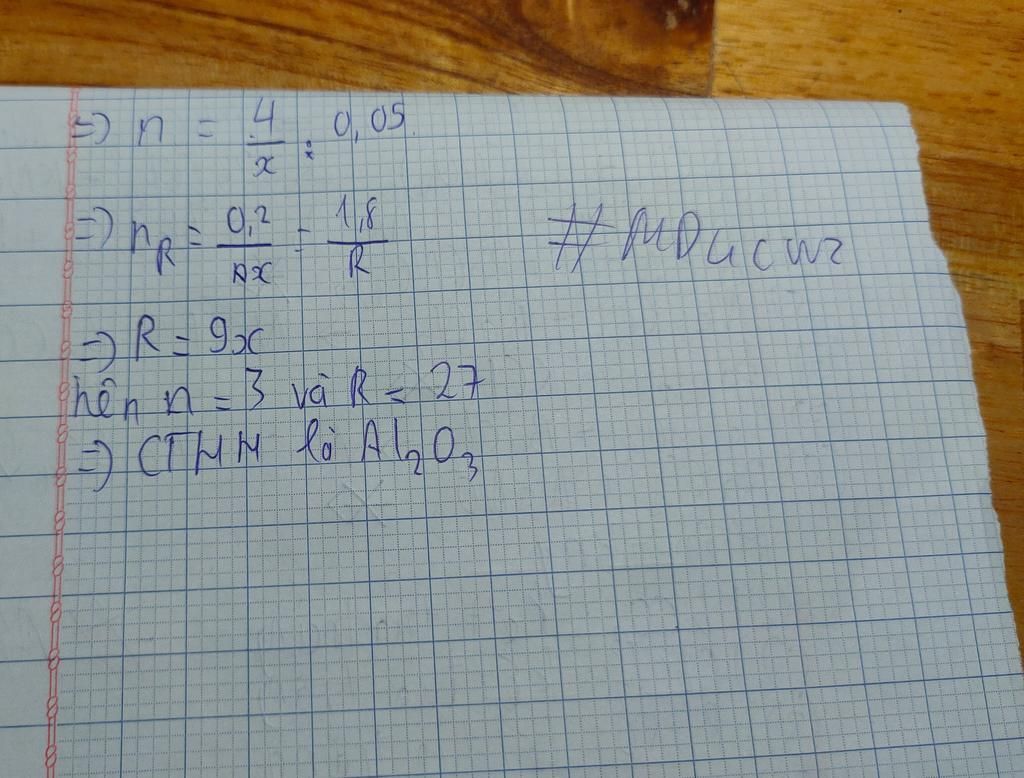 => n = 4/x : 0,05
=> nR = 0,2/nx = 1,8/R
#MDucwz
=> R = 9x
nên n = 3 và R = 27
=> CTHH là Al2O3